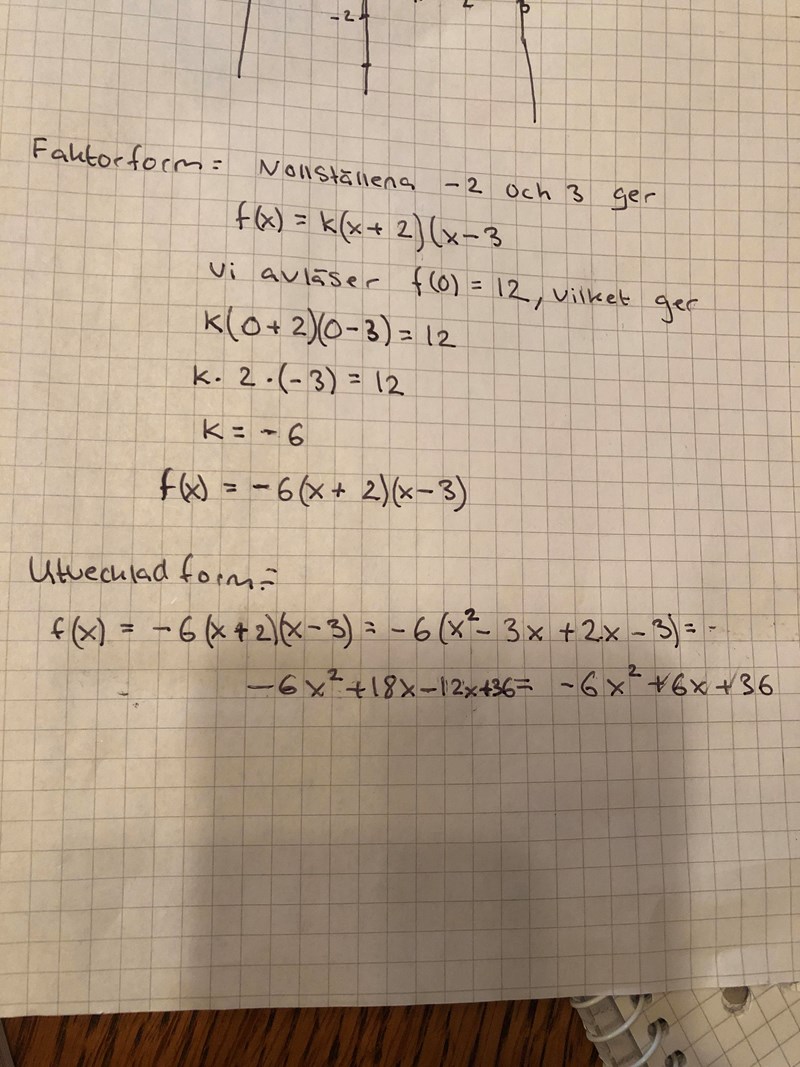 -2
Faktorform = Nollställena -2 och 3 ger
f(x) = k(x+2)(x-3
vi avläser f(0) = 12, vilket ger
k(0+2)(0-3) = 12
k · 2 · (-3) = 12
k = -6
f(x) = -6(x+2)(x-3)
Utvecklad form =
f(x) = -6(x+2)(x-3) = -6(x²-3x+2x-3) = -
-6x²+18x-12x+36= -6x²+6x+36